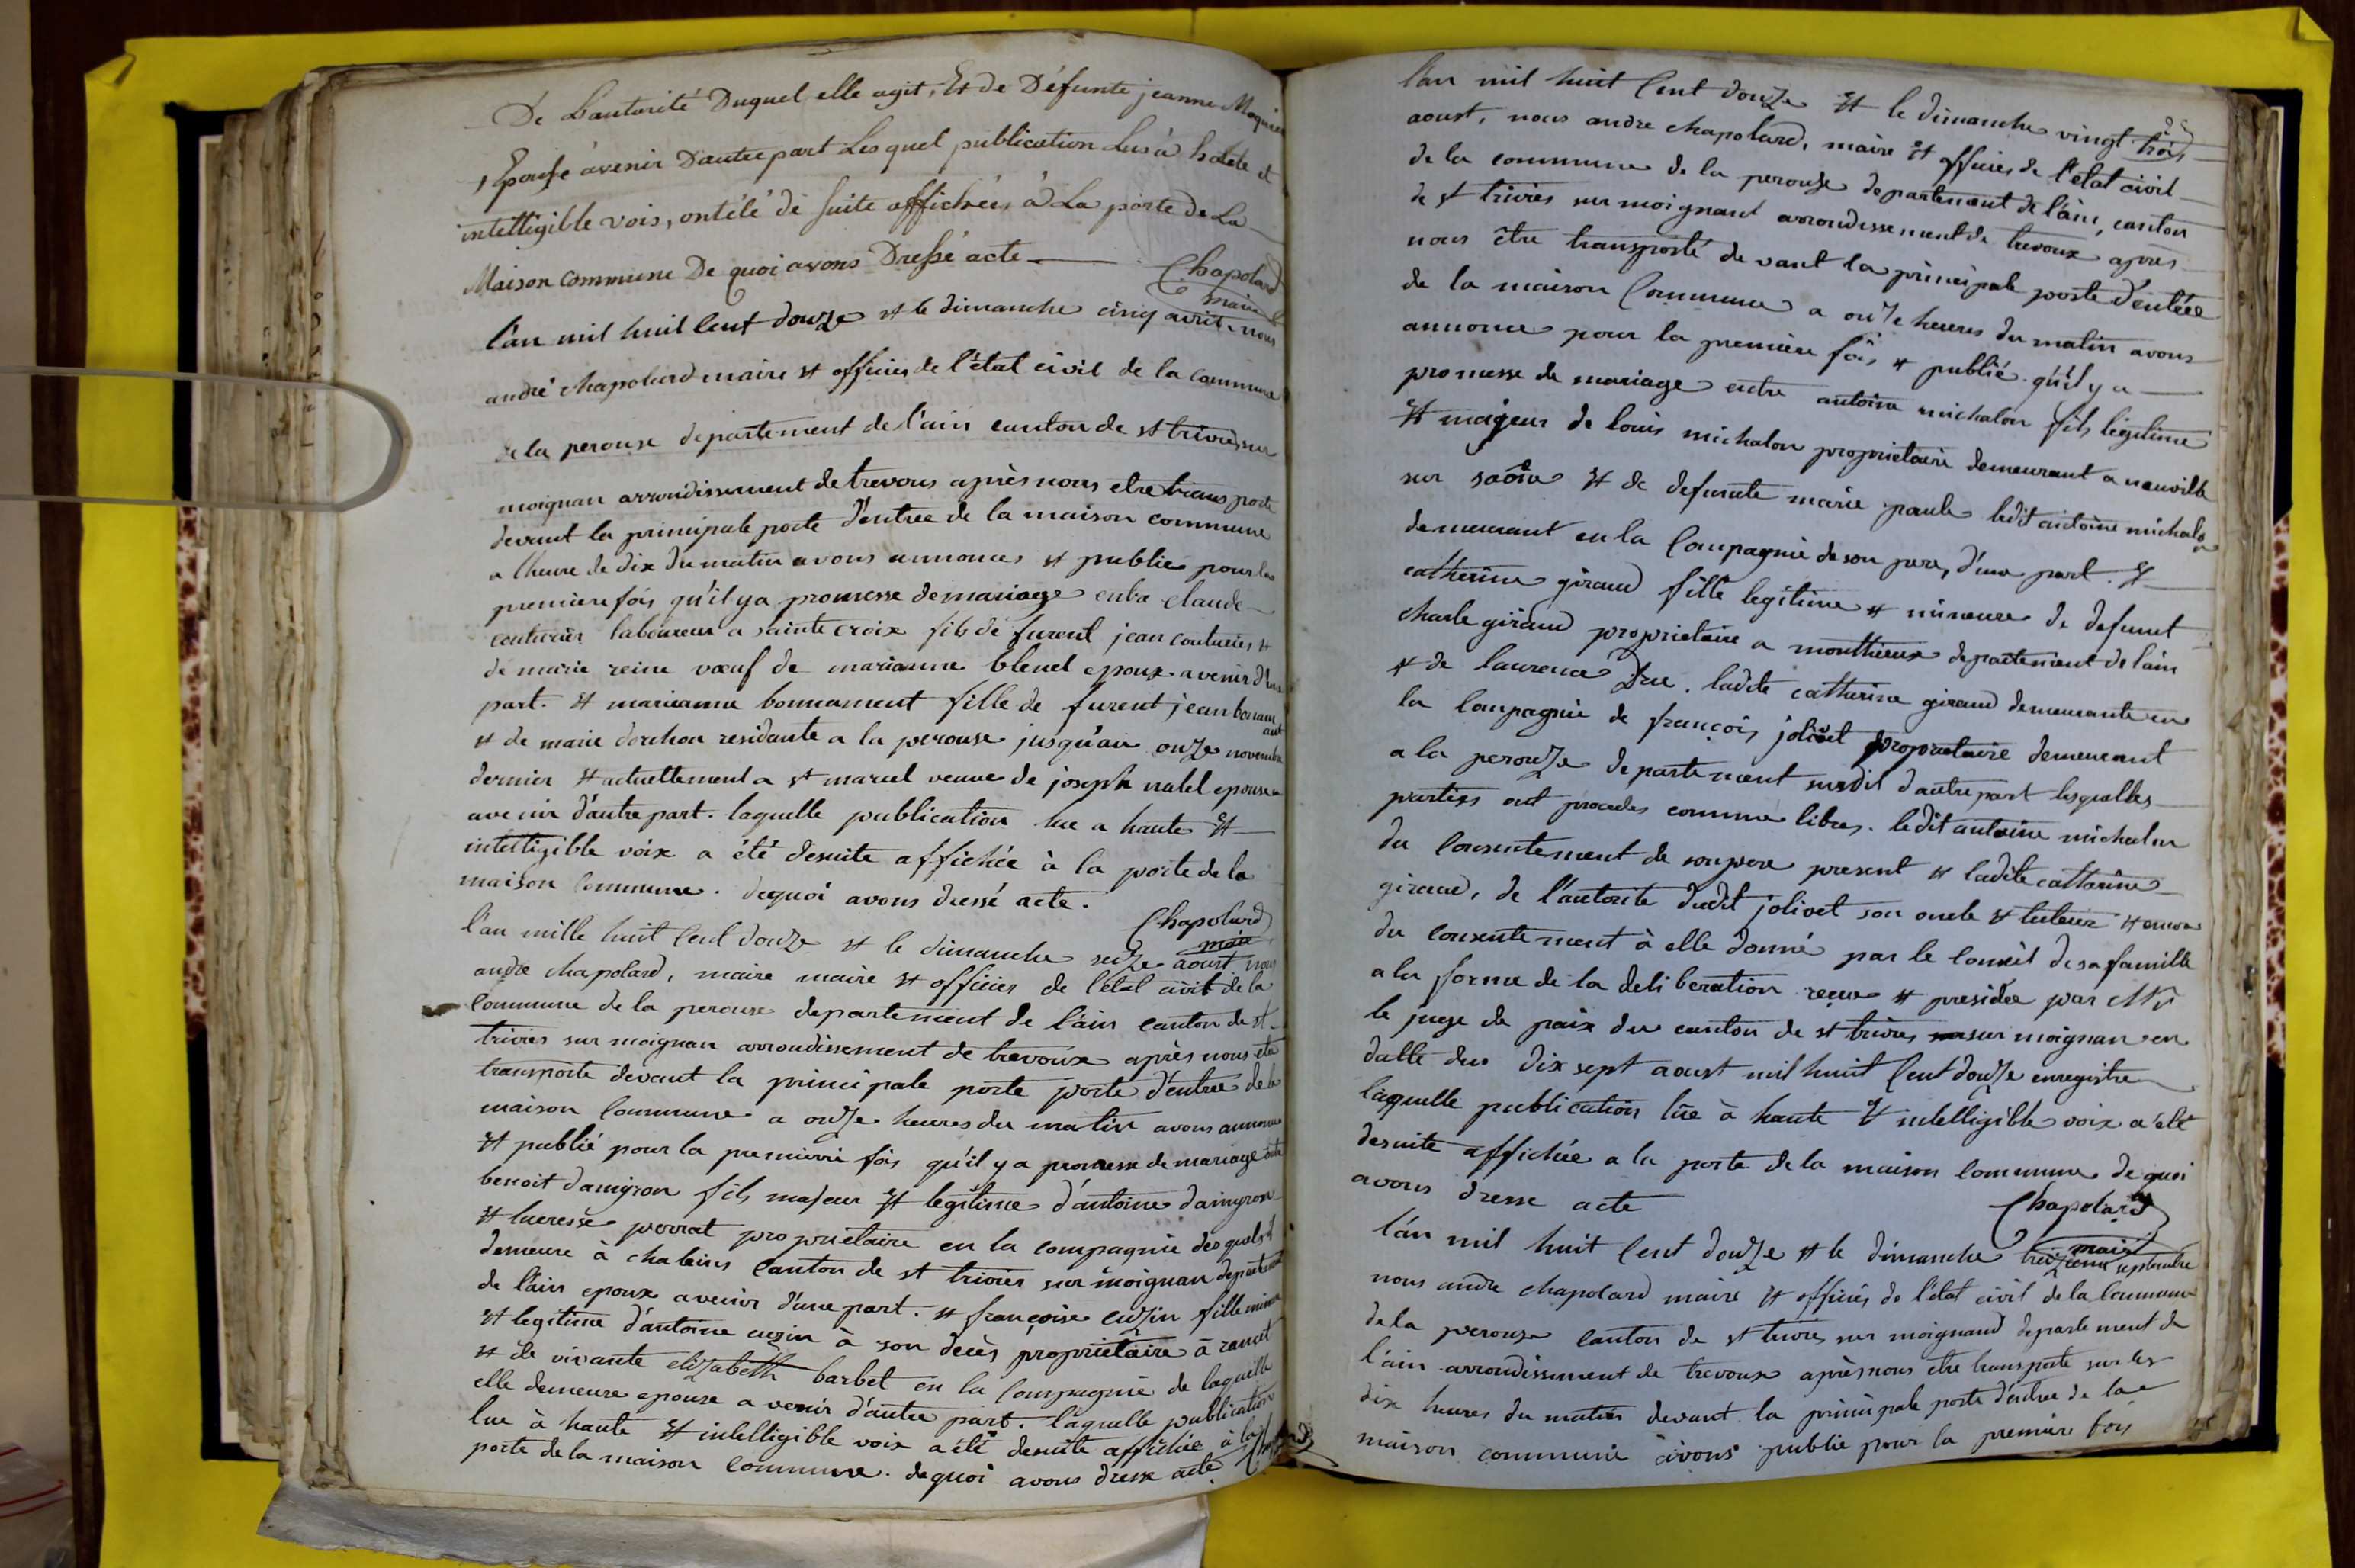 De Lautorité Duquel elle agit, Et de Défunte jeanne
, Epouse avenir Dautre part Lesquel publication Lus à haute et
intelligible vois, ont été de suite affichées à La porte de La
Maison Commune De quoi avons Dressé acte
Chapolard
maire
l'an mil huit Cent douze et le dimanche cinq avril, nous
andré chapolard maire et officier de l'état civil de la Commune
de la perouse departement de l'ain canton de st trivier sur
moignan arrondissement de trevoux après nous etre transporté
devant la principale porte d'entrée de la maison commune
a lheure de dix du matin avons annoncés et publié pour la
premiere fois qu'il y a promesse de mariage entre claude
couturier laboureur a sainte croix fils de furent jean couturier et
de marie reine vœuf de marianne blenel epoux avenir d'une
part. et marianne bonnament fille de furent jean bonnamant
et de marie dorchon residante a la perouse jusqu'au onze novembre
dernier et actuellement a st marcel veuve de joseph natel epouse
avenir d'autre part. laquelle publication lue a haute et
intelligible voix a été desuite affichée à la porte de la
maison Commune. dequoi avons dressé acte.
Chapolard
maire
l'an mille huit Cent douze et le dimanche seize aoust nous
andre chapolard, maire maire et officier de l'état civil de la
Commune de la perouse departement de l'ain Canton de st
trivier sur moignan arrondissement de trevoux après nous etre
transporté devant la principale porte porte d'entrée de la
maison Commune a onze heures du matin avons annoncé
et publié pour la premierre fois qu'il y a promesse de mariage entre
benoit damigron fils majeur et legitime d'antoine damigron
et lucresse perrat propriétaire en la compagnie desquels il
demeure à chaleins Canton de st trivier sur moignan departement
de l'ain epoux avenir d'une part. et françoise cuzin fille mineure
et legitime d'antoine cuzin à son decès propriétaire à rancé
et de vivante elizabeth barbet en la Compagnie de laquelle
elle demeure epouse a venir d'autre part. laquelle publication
lue à haute et intelligible voix a été desuite affichée à la
porte de la maison Commune. dequoi avons dresse acte
l'an mil huit Cent douze et le dimanche vingt trois
aoust, nous andre chapolard, maire et officier de l'état civil
de la commune de la perouse departement de l'ain, canton
de st trivier sur moignant arrondissement de trevoux après
nous être transporté devant la principale porte d'entrée
de la maison Commune a onze heures du matin avons
annoncé pour la première fois et publié qu'il y a
promesse de mariage entre antoine michalon fils légitime
et majeur de louis michalon proprietaire demeurant a neuville
sur saône et de defunte marie paule ledit antoine michalon
demeurant en la Compagnie de son pere, d'une part. et
catherine giraud fille legitime et mineure de defunt
charle giraud proprietaire a monthieux departement de lain
et de laurence Duc. ladite catherine giraud demeurante en
la Compagnie de françois jolivet proprietaire demeurant
a la perouze departement susdit d'autre part lesquelles
parties ont procedes comme libres. ledit antoine michalon
du Consentement de son pere present et ladite catherine
giraud, de l'autorité dudit jolivet son oncle et tuteur et encore
du consentement à elle donné par le conseil de sa famille
a la forme de la deliberation reçue et presidée par Mr
le juge de paix du canton de st trivier sur moignan en
datte du dix sept aoust mil huit Cent douze enregistré
laquelle publication lue à haute et intelligible voix a été
desuite affichée a la porte de la maison Commune de quoi
avons dresse acte
Chapolard
maire
l'an mil huit Cent douze et le dimanche treizieme septembre
nous andre chapolard maire et officier de l'état civil de la Commune
de la perouse canton de st trivier sur moignand departement de
l'ain arrondissement de trevoux après nous etre transporté sur les
dix heures du matin devant la principale porte d'entree de la
maison commune avons publié pour la premiere fois